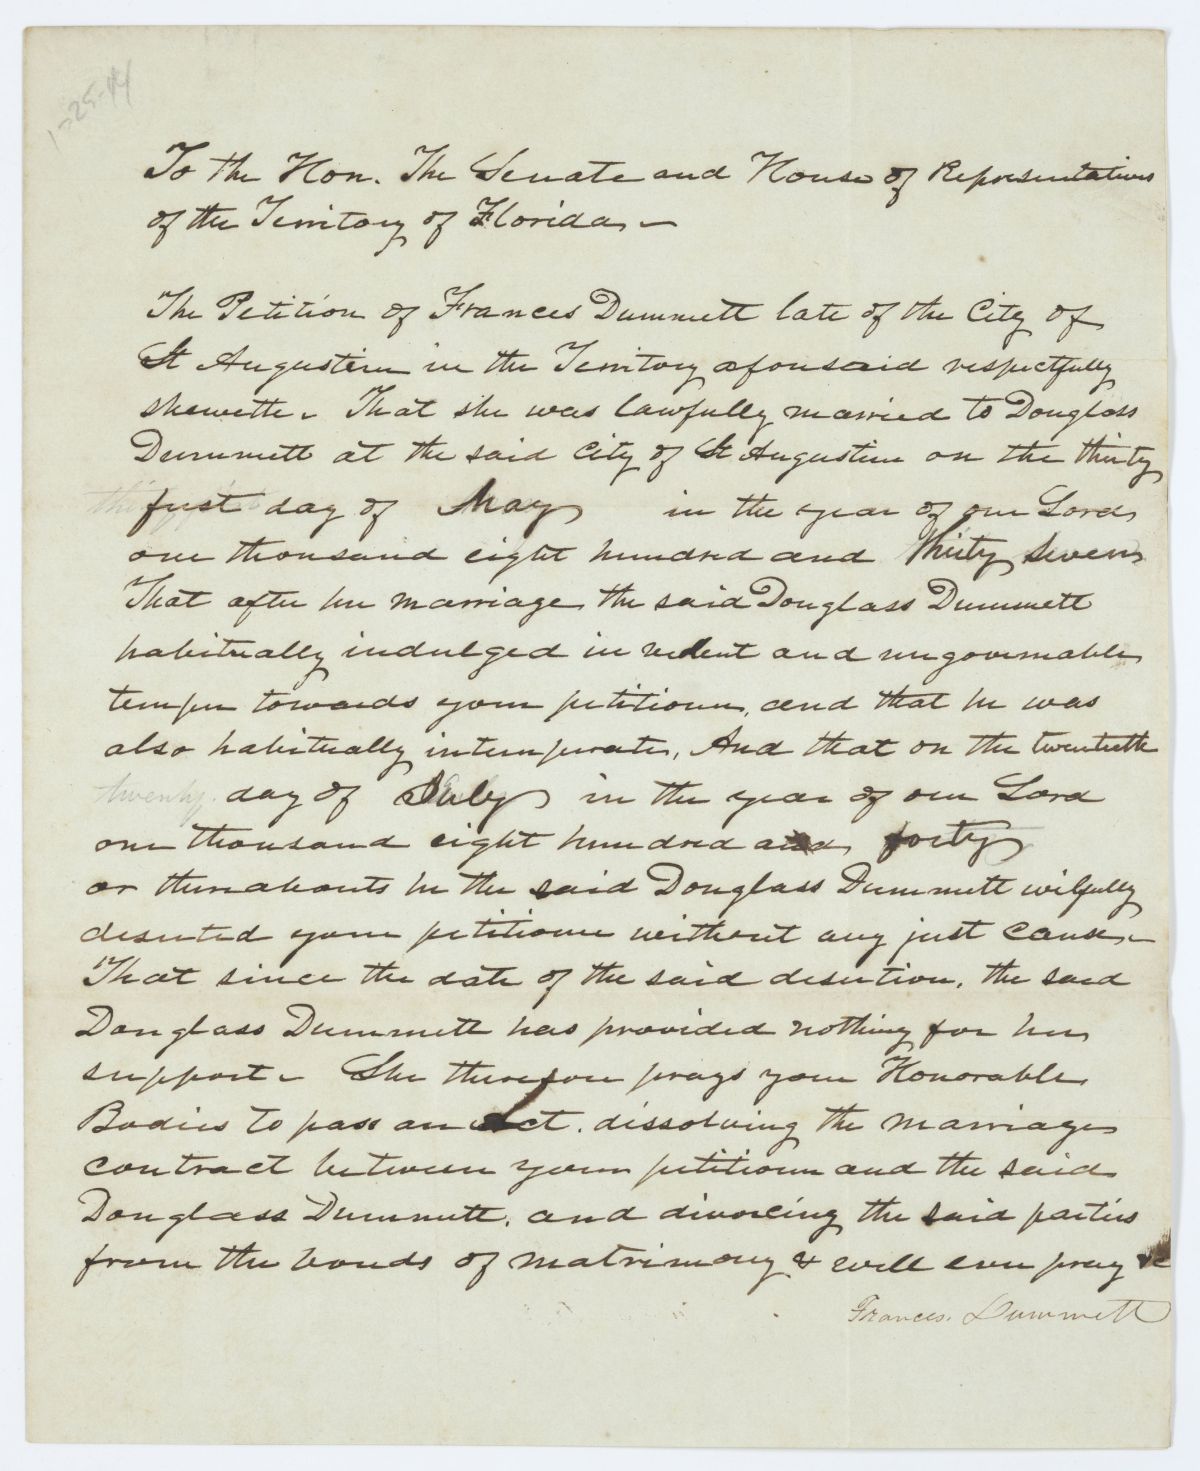 1-25-44
To the Hon. The Senate and House of Representatives
of the Territory of Florida. –
The Petition of Frances Dummett late of the City of
St Augustine in the Territory aforesaid respectfully
sheweth. That she was lawfully married to Douglass
Dummett at the said City of St Augustine on the thirty
first day of May in the year of our Lord
one thousand eight hundred and thirty seven
That after her marriage the said Douglass Dummett
habitually indulged in violent and ungovernable
temper towards your petitioner, and that he was
also habitually intemperate, And that on the twentieth
twenty day of July in the year of our Lord
one thousand eight hundred and forty
or thereabouts he the said Douglass Dummett wilfully
deserted your petitioner without any just cause. –
That since the date of the said desertion, the said
Douglass Dummett has provided nothing for her
support. She therefore prays your Honorable
Bodies to pass an Act. dissolving the marriage
contract between your petitioner and the said
Douglass Dummett, and divorcing the said parties
from the bonds of matrimony & will ever pray &c
Frances. Dummett